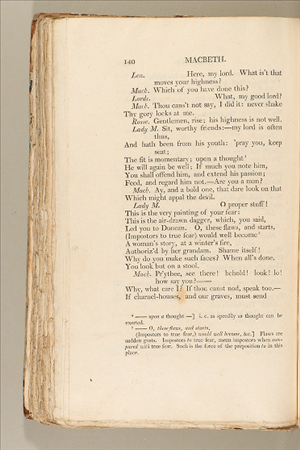 140 MACBETH.
Len. Here, my lord. What is't that
moves your highness?
Macb. Which of you have done this?
Lords. What, my good lord?
Macb. Thou canst not say, I did it: never shake
Thy gory locks at me.
Rosse. Gentlemen, rise; his highness is not well.
Lady M. Sit, worthy friends:—my lord is often
thus,
And hath been from his youth: 'pray you, keep
seat;
The fit is momentary; upon a thought
He will again be well: If much you note him,
You shall offend him, and extend his passion;
Feed, and regard him not.—Are you a man?
Macb. Ay, and a bold one, that dare look on that
Which might appal the devil.
Lady M. O proper stuff!
This is the very painting of your fear:
This is the air-drawn dagger, which, you said,
Led you to Duncan. O, these flaws, and starts,
(Impostors to true fear) would well become
A woman's story, at a winter's fire,
Authoriz'd by her grandam. Shame itself!
Why do you make such faces? When all's done,
You look but on a stool.
Macb. Pr'ythee, see there! behold! look! lo!
how say you?——
Why, what care I? If thou canst nod, speak too.—
If charnel-houses, and our graves, must send
—— upon a thought —] i. e. as speedily as thought can be
exerted.
—— O, these flaws, and starts,
(Impostors to true fear,) would well become, &c.] Flaws are
sudden gusts. Impostors to true fear, mean impostors when com-
pared with true fear. Such is the force of the preposition to in this
place.